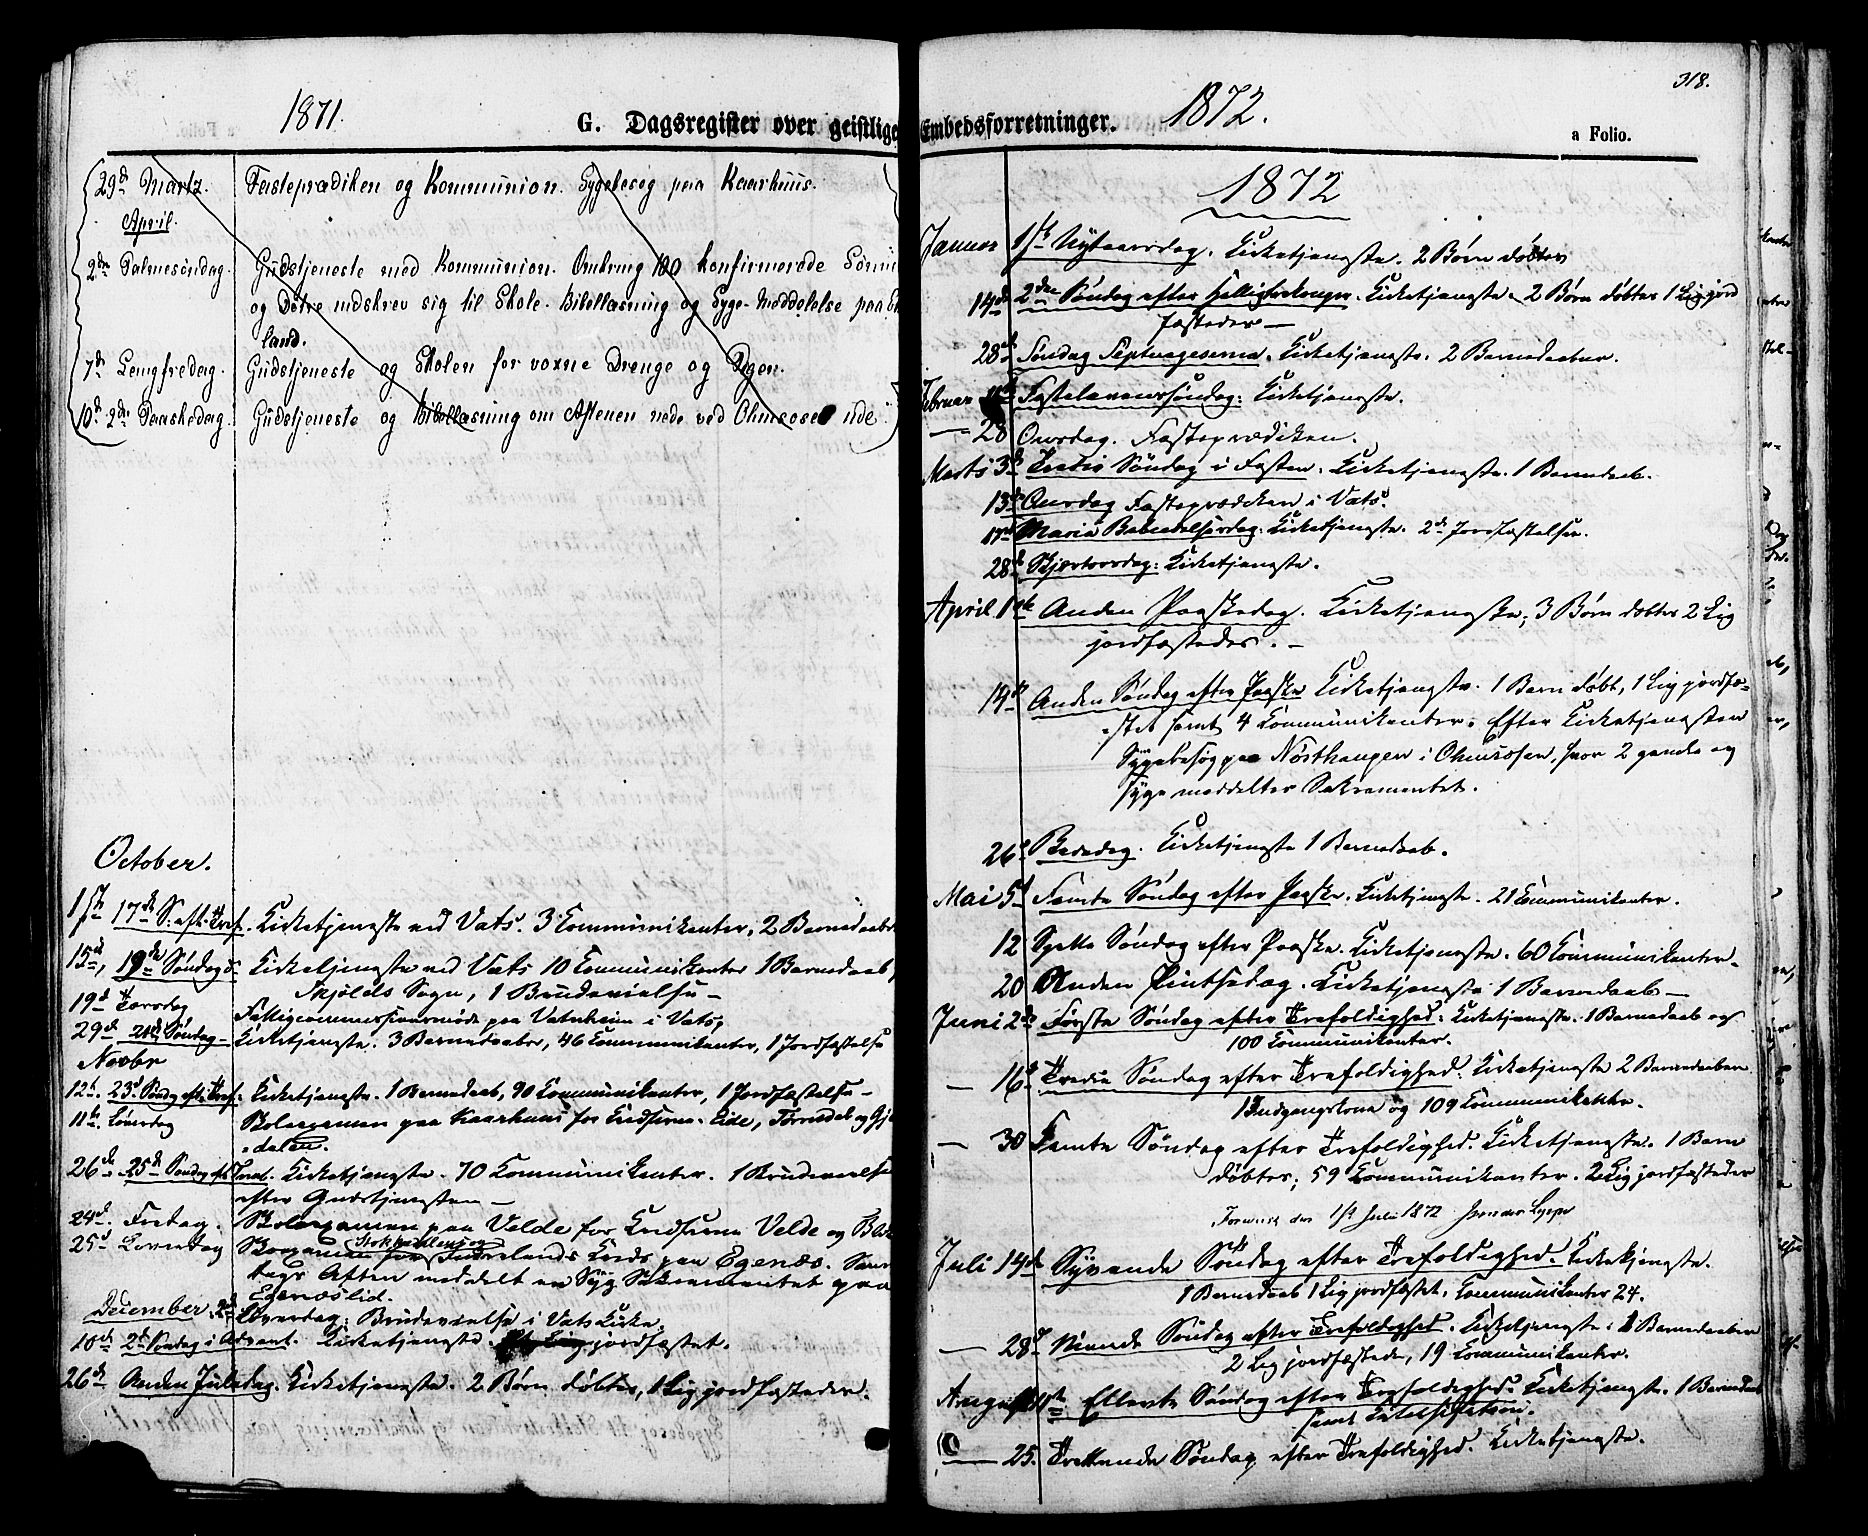 1871.
G. Dagsregister over geistlige
29de Martz. Fasteprædiken og Kommunion. Sygebesøg paa Kaarhuus.
April.
2den Palmesøndag. Gudstjeneste med Kommunion. Omkring 100 konfirmerede Sønner
og Døtre indskrev sig til Skole. Bibellæsning og Syge-Meddelelse paa
land.
7de Langfredag. Gudstjeneste og Skolen for voxne Drenge og Pigen.
10de 2den Paaskedag. Gudstjeneste og Bibellæsning om Aftenen nede ved Ølmsosen
October.
1ste 17de S. eft. Tref. Kirketjeneste ved Vats. 3 Communikanter, 2 Barnedaabe
15de, 19de Søndag Kirketjeneste ved Vats 10 Communikanter 1 Barnedaab
Skjolds Sogn, 1 Brudevielse –
19de Torsdag Fattigcommissionsmøde paa Vatsheim i Vats,
29de 21de Søndag Kirketjeneste. 3 Barnedaabe, 46 Communikanter, 1 Jordfæstelse
Novbr
12te. 23de Søndag eft. Tref. Kirketjeneste. 1 Barnedaab, 90 Communikanter, 1 Jordfæstelse –
11te. Løverdag Skoleexamen paa Kaarhuus for Kredsene. Eide,
dalen.
26de 25de Søndag eft Tref. Kirketjeneste. 70 Communikanter. 1 Brudevielse
efter Gudstjenesten –
24de. Fredag. Skolexamen paa Velde for Kredsene Velde og
25de Løverdag for Inderelands Kreds paa Egenæs. Sam
tags Aften meddelt en Syg Sakramentet paa
Egenæslid.
December 2de Løverdag: Brudevielse i Vats Kirke.
10de 2den Søndag i Advent. Kirketjeneste. jordfæstet.
26de Anden Juledag. Kirketjeneste. 2 Børn døbtes, 1 Lig jordfæstedes.
318.
Embedsforretninger. 1872.
a Folio.
1872
Januar 1ste Nytaarsdag. Kirketjeneste. 2 Børn døbtes
14de 2den Søndag efter Helligtrekonger. Kirketjeneste. 2 Børn døbtes 1 Lig jord
fæstedes –
28de Søndag Septuagesema. Kirketjeneste. 2 Barnedaaber.
Februar 11te Fastelavenssøndag: Kirketjeneste.
– 28 Onsdag. Fasteprædiken.
Marts 3de Tredie Søndag i Fasten. Kirketjeneste. 1 Barnedaab.
13de Onsdag Fasteprædiken i Vats.
17de Mariæ Bebudelsesdag. Kirketjeneste. 2de Jordfæstelser.
28de Skjærtorsdag: Kirketjeneste.
April 1ste Anden Paaskedag. Kirketjeneste; 3 Børn døbtes 2 Lig
jordfæstedes. –
14de Anden Søndag efter Paaske Kirketjeneste. 1 Barn døbt, 1 Lig jordfæ-
stet samt 4 Communikanter. Efter Kirketjenesten
Sygebesøg paa Nørsthaugen i Ølmsosen, hvor 2 gamle og
syge meddeltes Sakramentet.
26de Bededag. Kirketjeneste 1 Barnedaab.
Mai 5te Femte Søndag efter Paaske. Kirketjeneste. 21 Communikanter.
12 Sjette Søndag efter Paaske. Kirketjeneste. 60 Communikanter.
20 Anden Pintsedag. Kirketjeneste 1 Barnedaab –
Juni 2den Første Søndag efter Trefoldighed. Kirketjeneste. 1 Barnedaab og
100 Communikanter.
– 16de Tredie Søndag efter Trefoldighed. Kirketjeneste 2 Barnedaaben
1 Indgangskone og 109 Communikanter.
– 30 Femte Søndag efter Trefoldighed. Kirketjeneste. 1 Barn
døbtes; 59 Communikanter. 2 Lig jordfæstedes
den 1ste Juli 1872
Juli 14de Syvende Søndag efter Trefoldighed. Kirketjeneste.
1 Barnedaab 1 Lig jordfæstet, Communikanter 24.
– 28de Niende Søndag efter Trefoldighed. Kirketjeneste. 1 Barnedaaben
2 Lig jordfæstede, 19 Communikanter.
August 11te Ellevte Søndag efter Trefoldighed. Kirketjeneste. 1 Barnedaab
samt Katekisation.
– 25. Trettende Søndag efter Trefoldighed. Kirketjeneste.